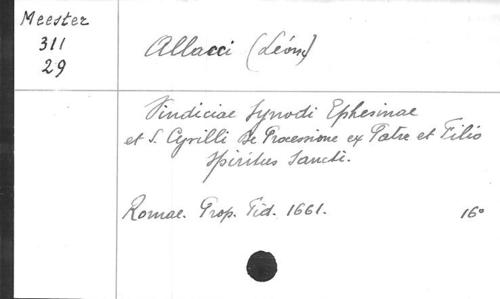 Meester
311
29
Allacci (Léon)
Vindiciae Synodi Ephesinae
et S. Cyrilli De Processione ex Patre et Filio
Spiritus Sancti.
Romae. Prop. Fid. 1661. 16°